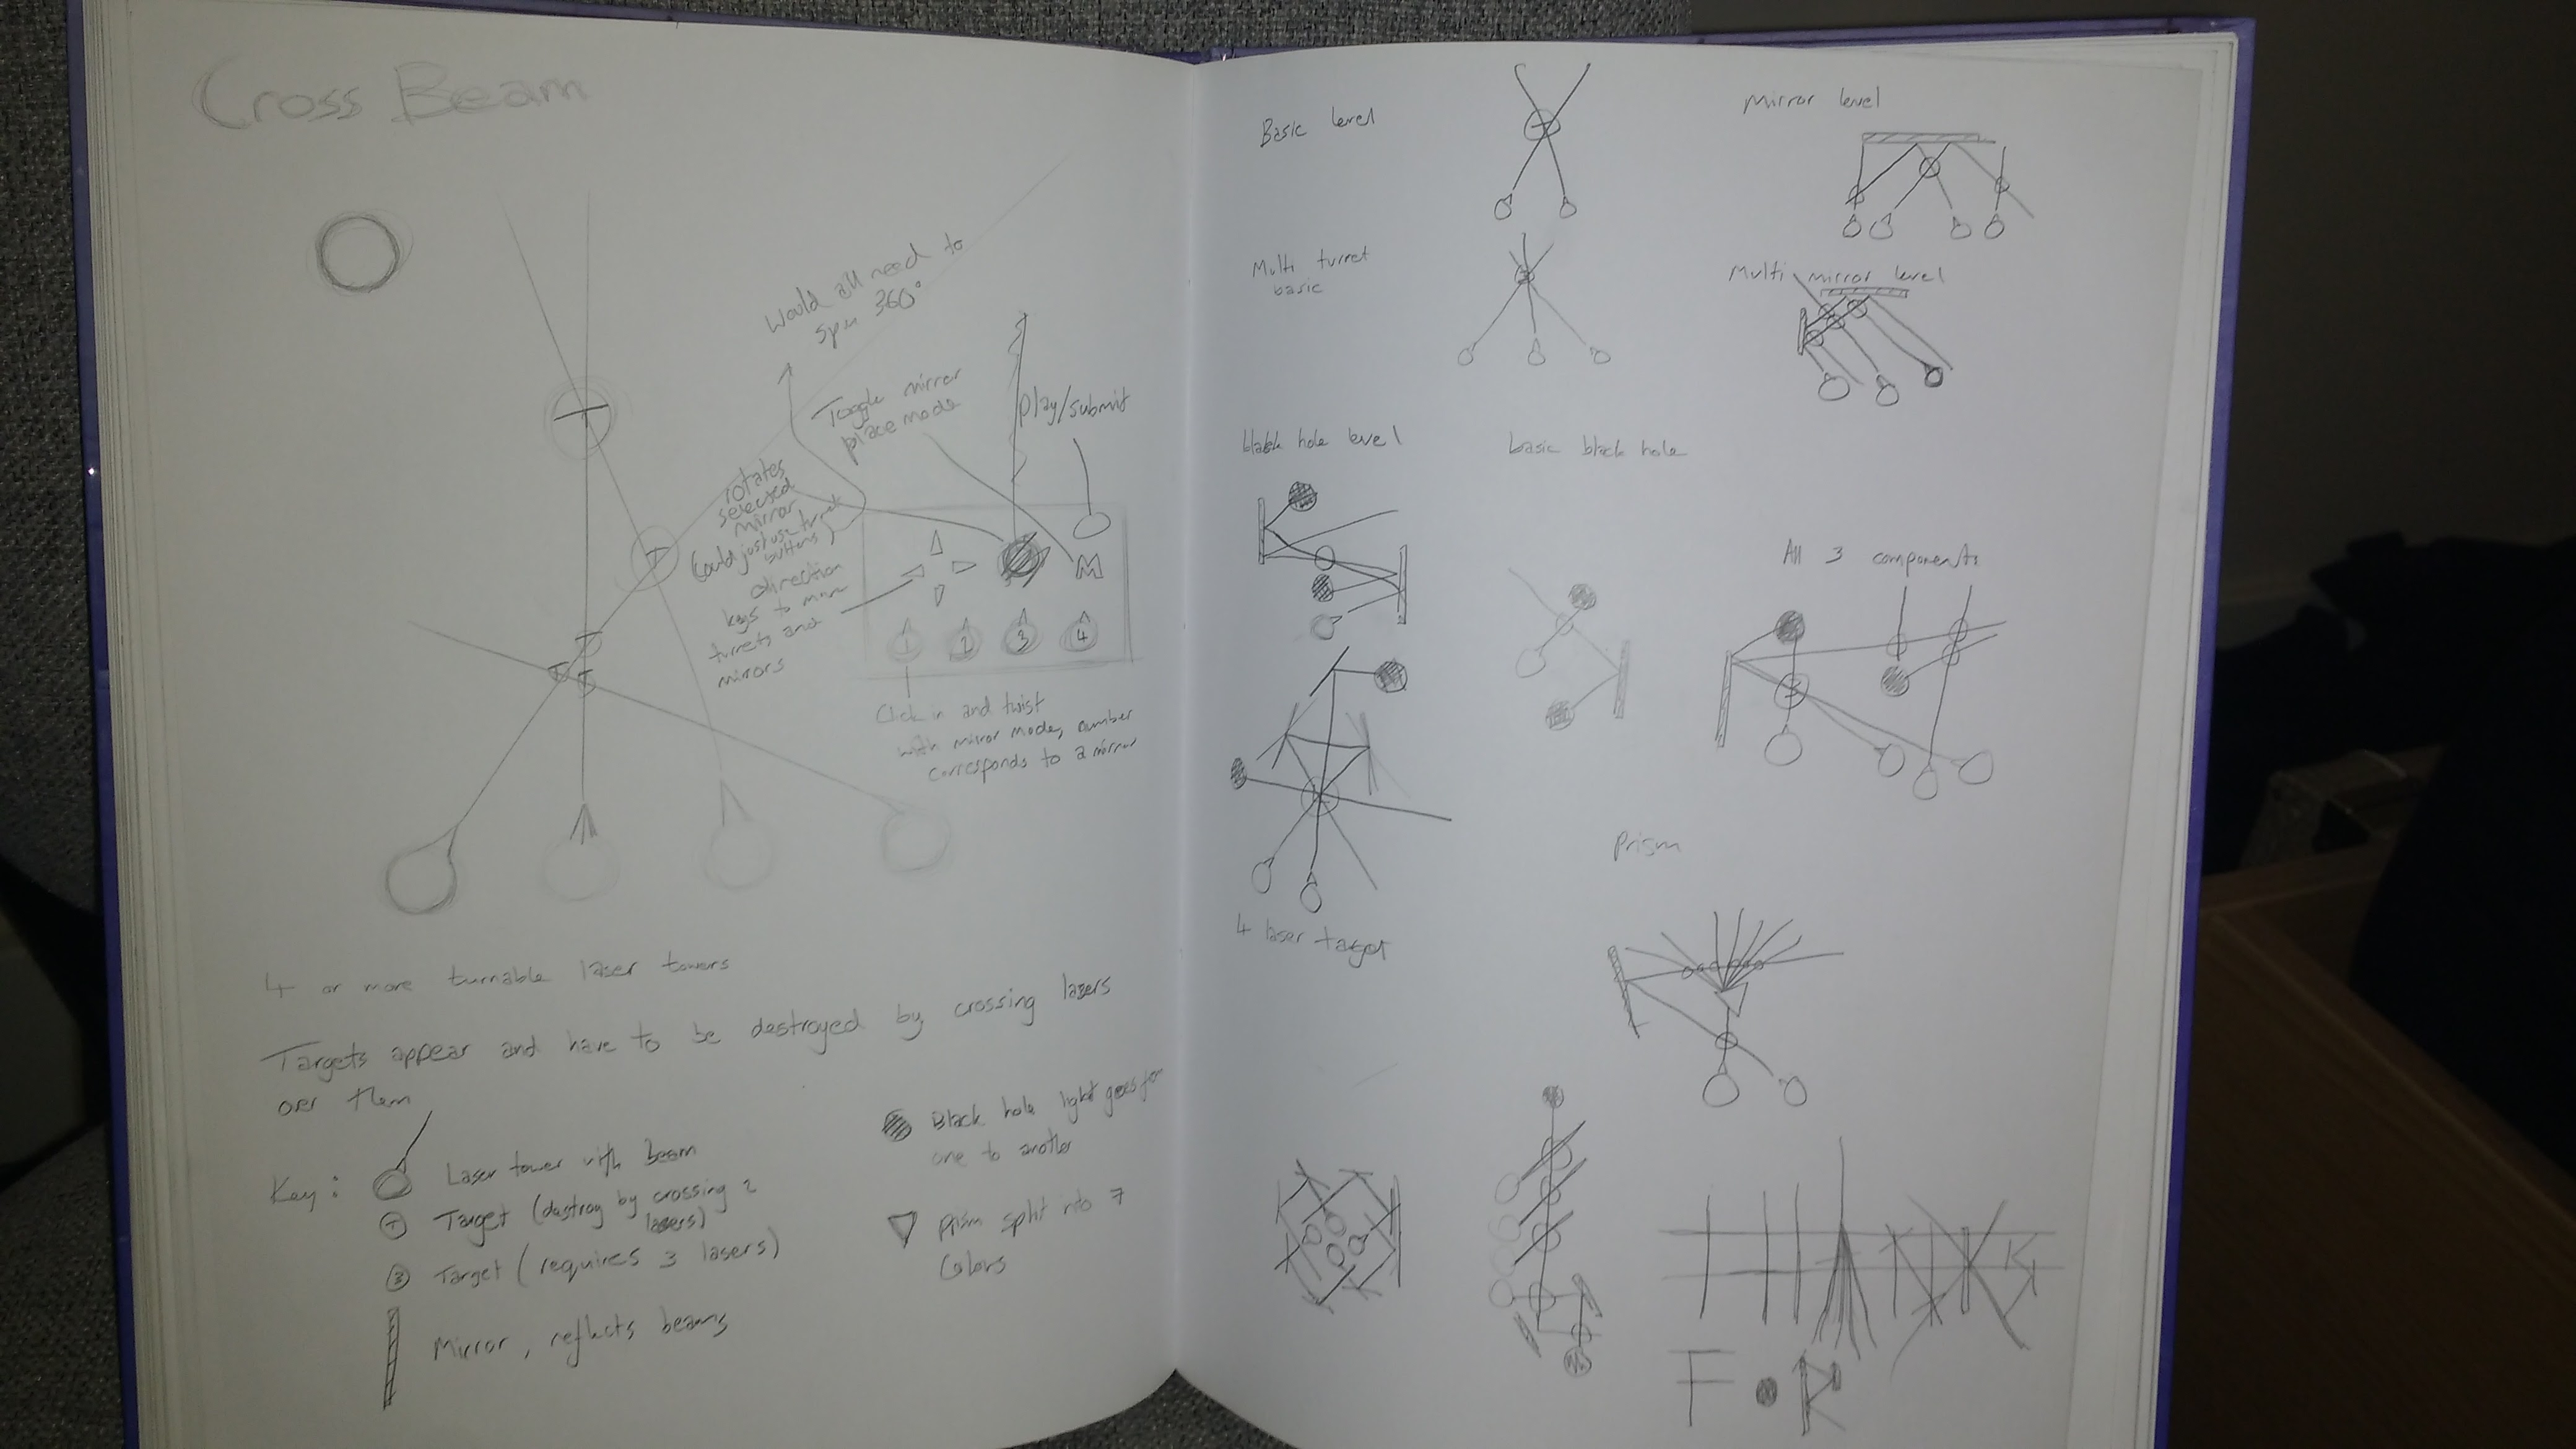 Cross Beam
Would all need to
spin 360°
Toggle mirror
place mode
Play/submit
rotates
selected
mirror
(could just use turret
buttons)
direction
keys to move
turrets and
mirrors
M
1 2 3 4
Click in and twist
with mirror mode, number
corresponds to a mirror
T
T
T
T
T
4 or more turnable laser towers
Targets appear and have to be destroyed by crossing lasers
over them
Key:
Laser tower with beam
T Target (destroy by crossing 2
lasers)
3 Target (requires 3 lasers)
Mirror, reflects beams
Black hole light goes from
one to another
Prism split into 7
Colors
Basic level
Mirror level
Multi turret
basic
Multi mirror level
black hole level
basic black hole
All 3 components
4 laser target
Prism